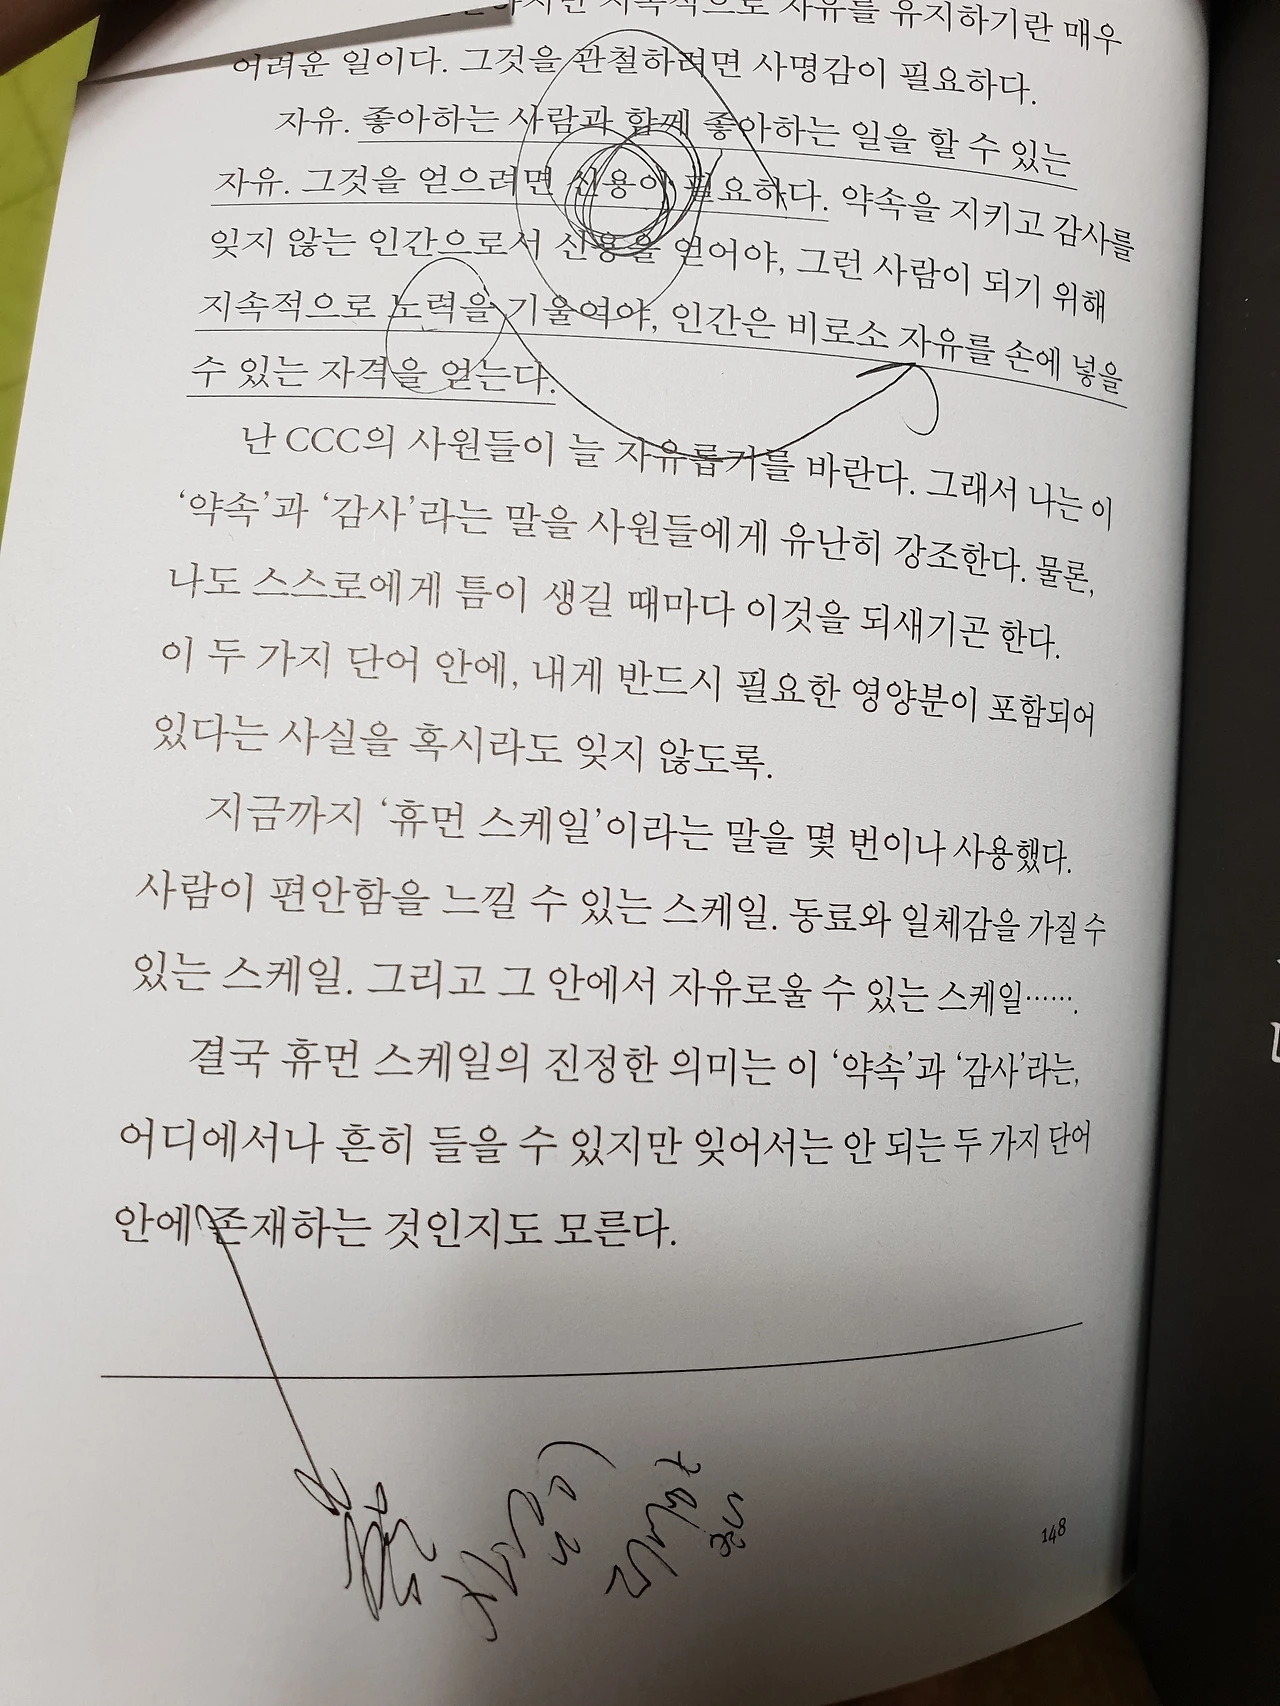 지속적으로 자유를 유지하기란 매우
어려운 일이다. 그것을 관철하려면 사명감이 필요하다.
자유. 좋아하는 사람과 함께 좋아하는 일을 할 수 있는
자유. 그것을 얻으려면 신용이 필요하다. 약속을 지키고 감사를
잊지 않는 인간으로서 신용을 얻어야, 그런 사람이 되기 위해
지속적으로 노력을 기울여야, 인간은 비로소 자유를 손에 넣을
수 있는 자격을 얻는다.
난 CCC의 사원들이 늘 자유롭기를 바란다. 그래서 나는 이
‘약속’과 ‘감사’라는 말을 사원들에게 유난히 강조한다. 물론,
나도 스스로에게 틈이 생길 때마다 이것을 되새기곤 한다.
이 두 가지 단어 안에, 내게 반드시 필요한 영양분이 포함되어
있다는 사실을 혹시라도 잊지 않도록.
지금까지 ‘휴먼 스케일’이라는 말을 몇 번이나 사용했다.
사람이 편안함을 느낄 수 있는 스케일. 동료와 일체감을 가질 수
있는 스케일. 그리고 그 안에서 자유로울 수 있는 스케일…….
결국 휴먼 스케일의 진정한 의미는 이 ‘약속’과 ‘감사’라는,
어디에서나 흔히 들을 수 있지만 잊어서는 안 되는 두 가지 단어
안에 존재하는 것인지도 모른다.
148